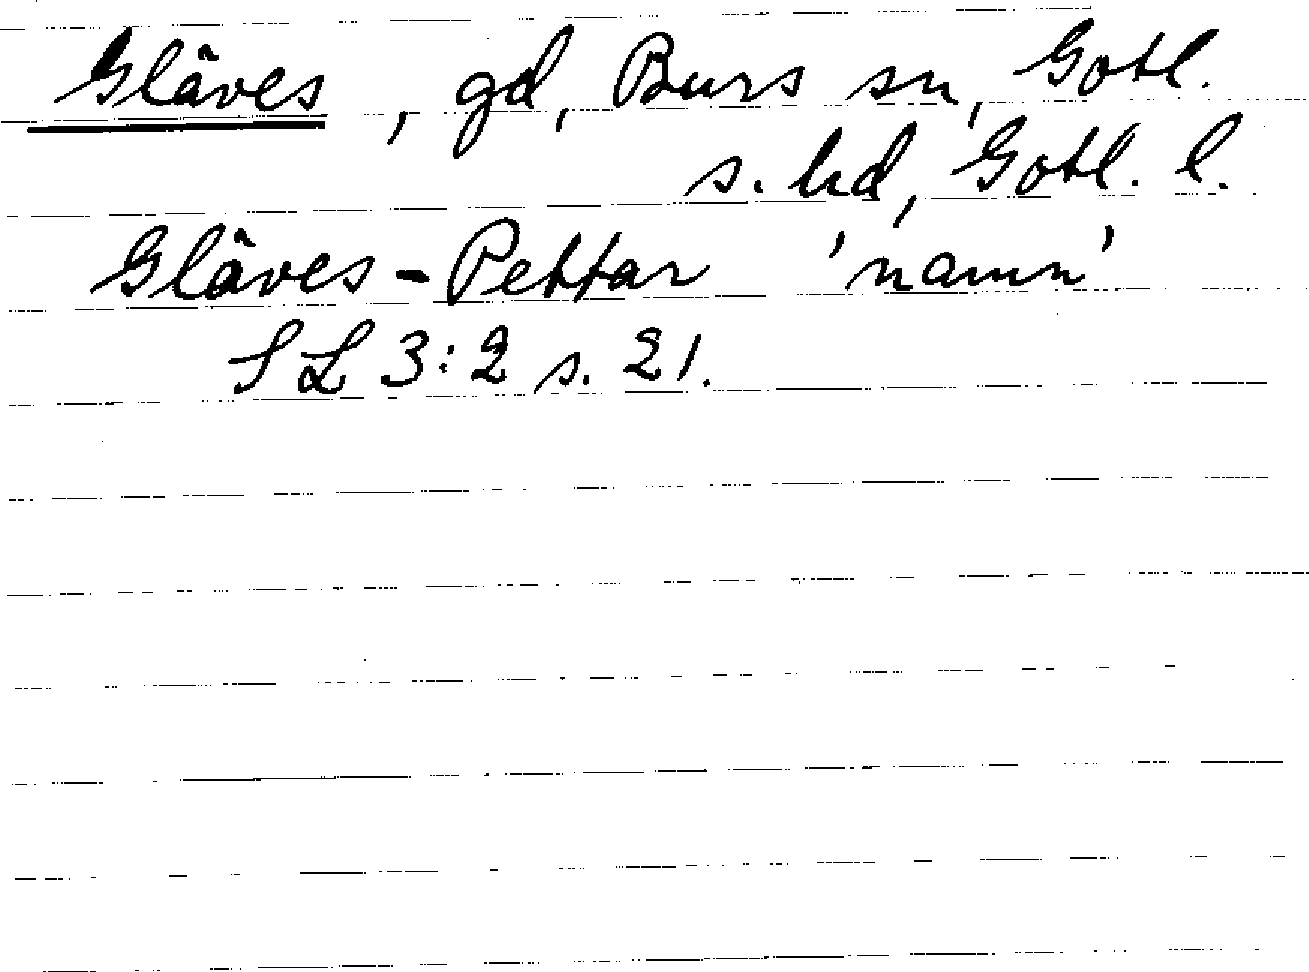 Gläves, gd, Burs sn, Gotl.
s. hd, Gotl. l.
Gläves-Pettar 'namn'
SL 3:2 s. 21.